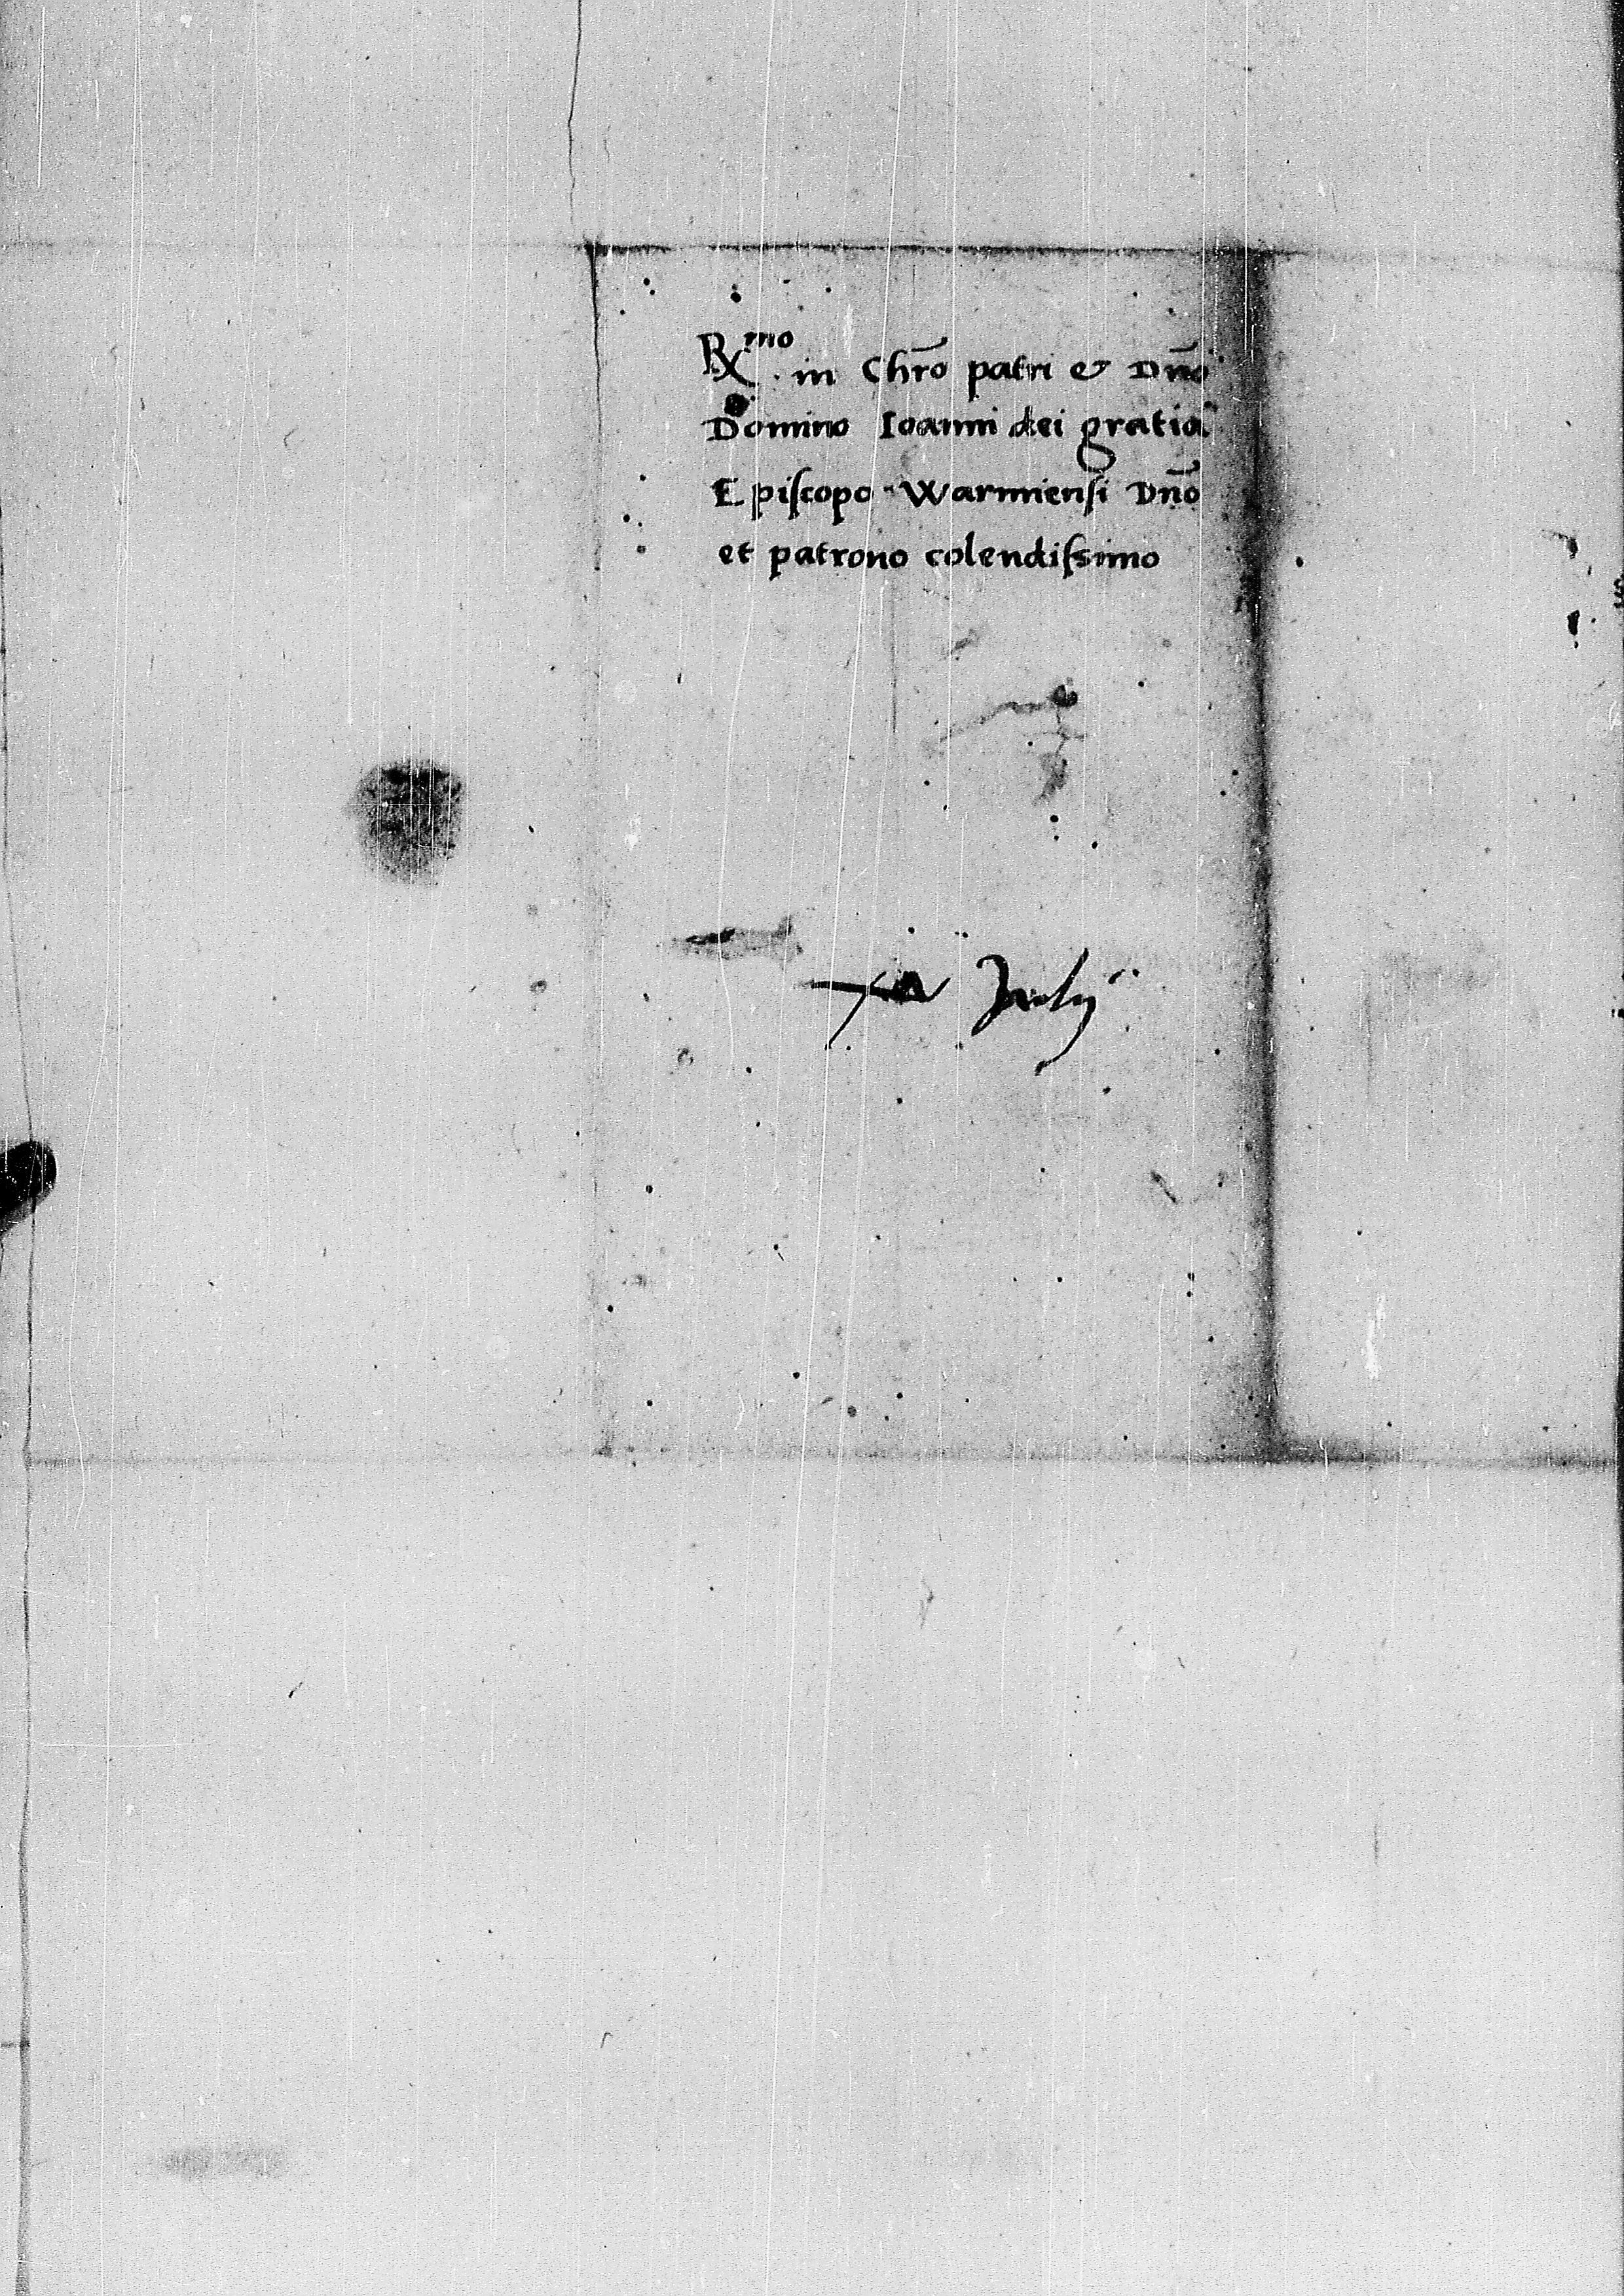 Rx^mo in Chr̃o patri & Dño
Domino Ioanni dei gratia
Episcopo Warmiensi Dño
et patrono colendissimo
Julij